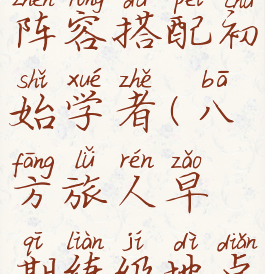 zhèn róng dā pèi chū
阵容搭配初
shǐ xué zhě bā
始学者(八
fāng lǚ rén zǎo
方旅人早
qī liàn jí dì diǎn
期练级地点